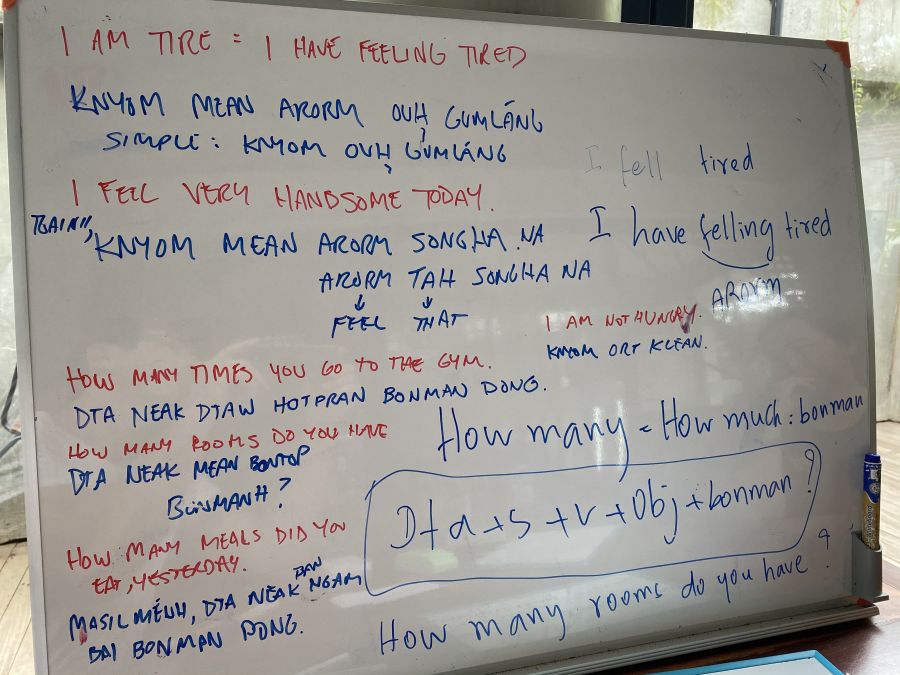 I AM TIRE = I HAVE FEELING TIRED
KNYOM MEAN ARORM OUH GUMLÁNG
SIMPLE: KNYOM OUH GUMLÁNG
I fell tired
I FEEL VERY HANDSOME TODAY.
KNYOM MEAN ARORM SONGHA NA
I have felling tired
ARORM
ARORM TAH SONGHA NA
FEEL THAT
I AM NOT HUNGRY.
KNYOM ORT KLEAN.
HOW MANY TIMES YOU GO TO THE GYM.
DTA NEAK DTAW HOTPRAN BONMAN DONG.
How many = How much : bonman
HOW MANY ROOMS DO YOU HAVE
DTA NEAK MEAN BONTOP
BONMANH?
Dta + s + v + Obj + bonman ?
How many rooms do you have ?
HOW MANY MEALS DID YOU
EAT, YESTERDAY.
MASILMÉNH, DTA NEAK BAN NGAM
BAI BONMAN DONG.